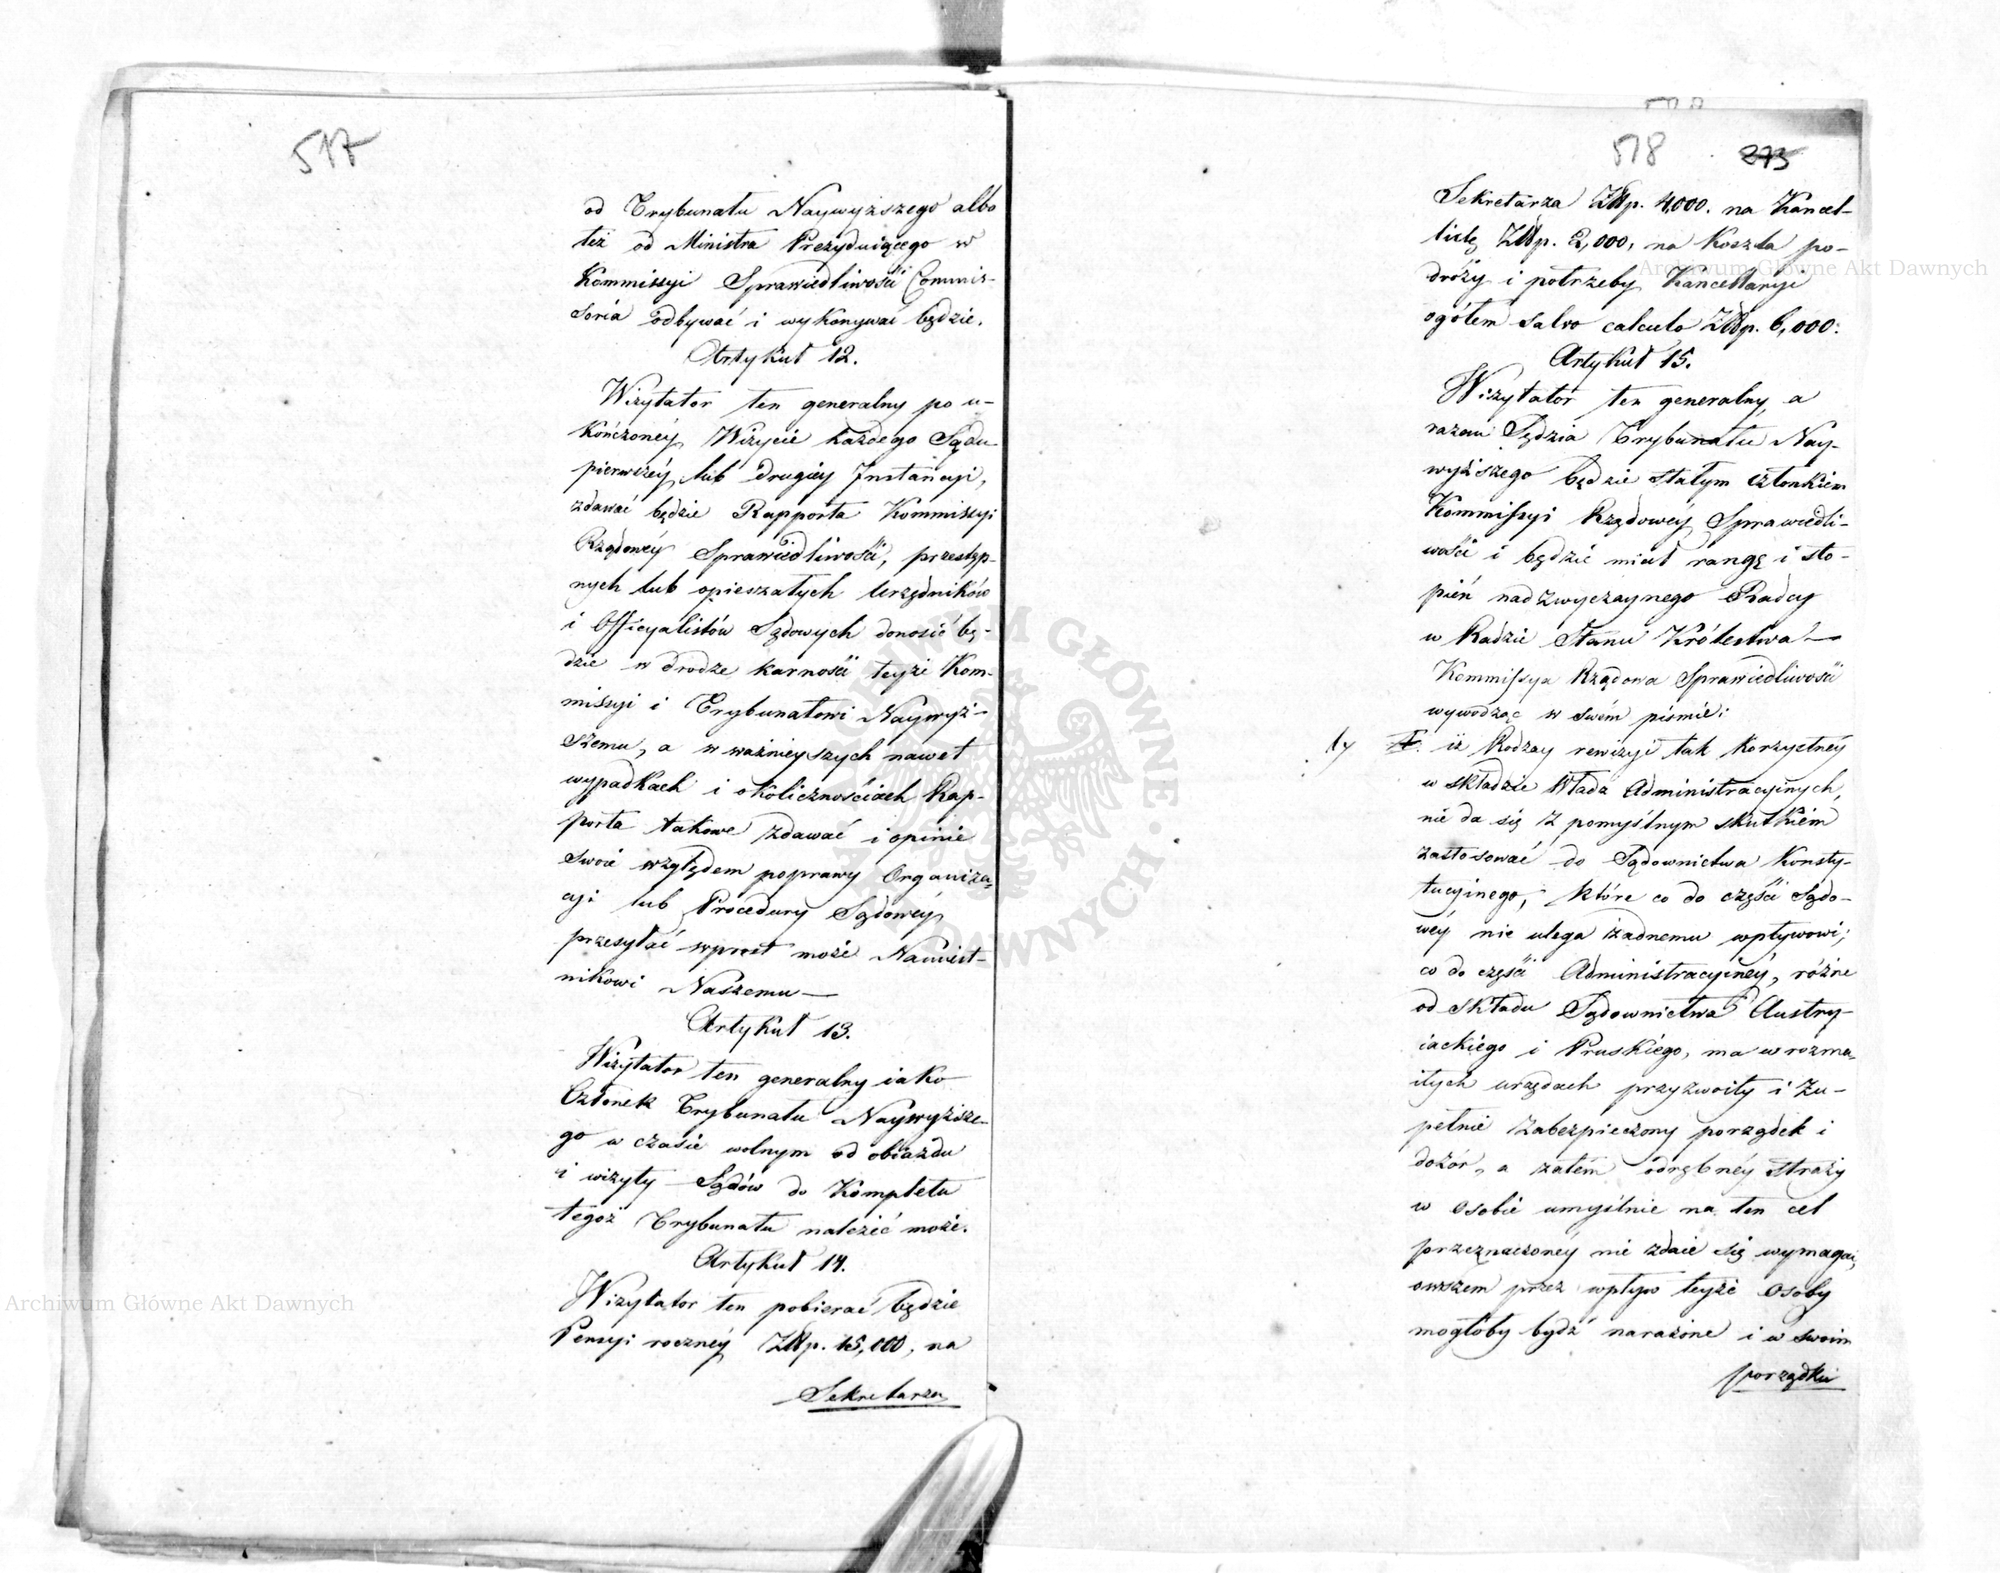 517
od Trybunału Naywyższego albo
też od Ministra Prezyduiącego w
Kommissyi Sprawiedliwości Commis-
soria odbywać i wykonywać będzie.
Artykuł 12.
Wizytator ten generalny po u-
kończoney Wizycie każdego Sądu
pierwszey lub drugiey Instancyi,
zdawać będzie Rapporta Kommissyi
Rządowey Sprawiedliwości, przestęp-
nych lub opieszałych Urzędników
i Officyalistów Sądowych donosić bę-
dzie w drodze karności teyże Kom-
missyi i Trybunałowi Naywyż-
szemu, a w ważnieyszych nawet
wypadkach i okolicznościach Rap-
porta takowe zdawać i opinie
swoie względem poprawy Organiza-
cyi lub Procedury Sądowey
przesyłać wprost może Namiest-
nikowi Naszemu —
Artykuł 13.
Wizytator ten generalny iako
Członek Trybunału Naywyższe-
go w czasie wolnym od obiazdu
i wizyty Sądów do Kompletu
tegoż Trybunału należeć może.
Artykuł 14.
Wizytator ten pobierać będzie
Pensyi roczney Złłp. 15,000, na
Sekretarza
518 273
Sekretarza Złłp. 4,000. na Kancel-
listę Złłp. 2,000, na Koszta po-
dróży i potrzeby Kancellaryi
ogółem salvo calculo Złłp. 6,000.
Artykuł 15.
Wizytator ten generalny, a
razem Sędzia Trybunału Nay-
wyższego będzie stałym członkiem
Kommissyi Rządowey Sprawiedli-
wości i będzie miał rangę i sto-
pień nadzwyczaynego Radcy
w Radzie Stanu Królestwa —
Kommissya Rządowa Sprawiedliwości
wywodząc w swém piśmie:
iż Rodzay rewizyi tak korzystney
w składzie Władz Administracyinych,
nie da się z pomyślnym skutkiem
zastosować do Sądownictwa Konsty-
tucyinego, które co do części Sądo-
wey nie ulega żadnemu wpływowi;
co do części Administracyiney, różne
od składu Sądownictwa Austry-
iackiego i Pruskiego, ma w rozma-
itych urzędach przyzwoity i zu-
pełnie zabezpieczony porządek i
dozór, a zatem odrębney straży
w osobie umyślnie na ten cel
przeznaczoney nie zdaie się wymagać,
owszem przez wpływ teyże osoby
mogłoby bydź narażone i w swoim
porządku
Archiwum Główne Akt Dawnych
Archiwum Główne Akt Dawnych
ARCHIWUM GŁÓWNE AKT DAWNYCH